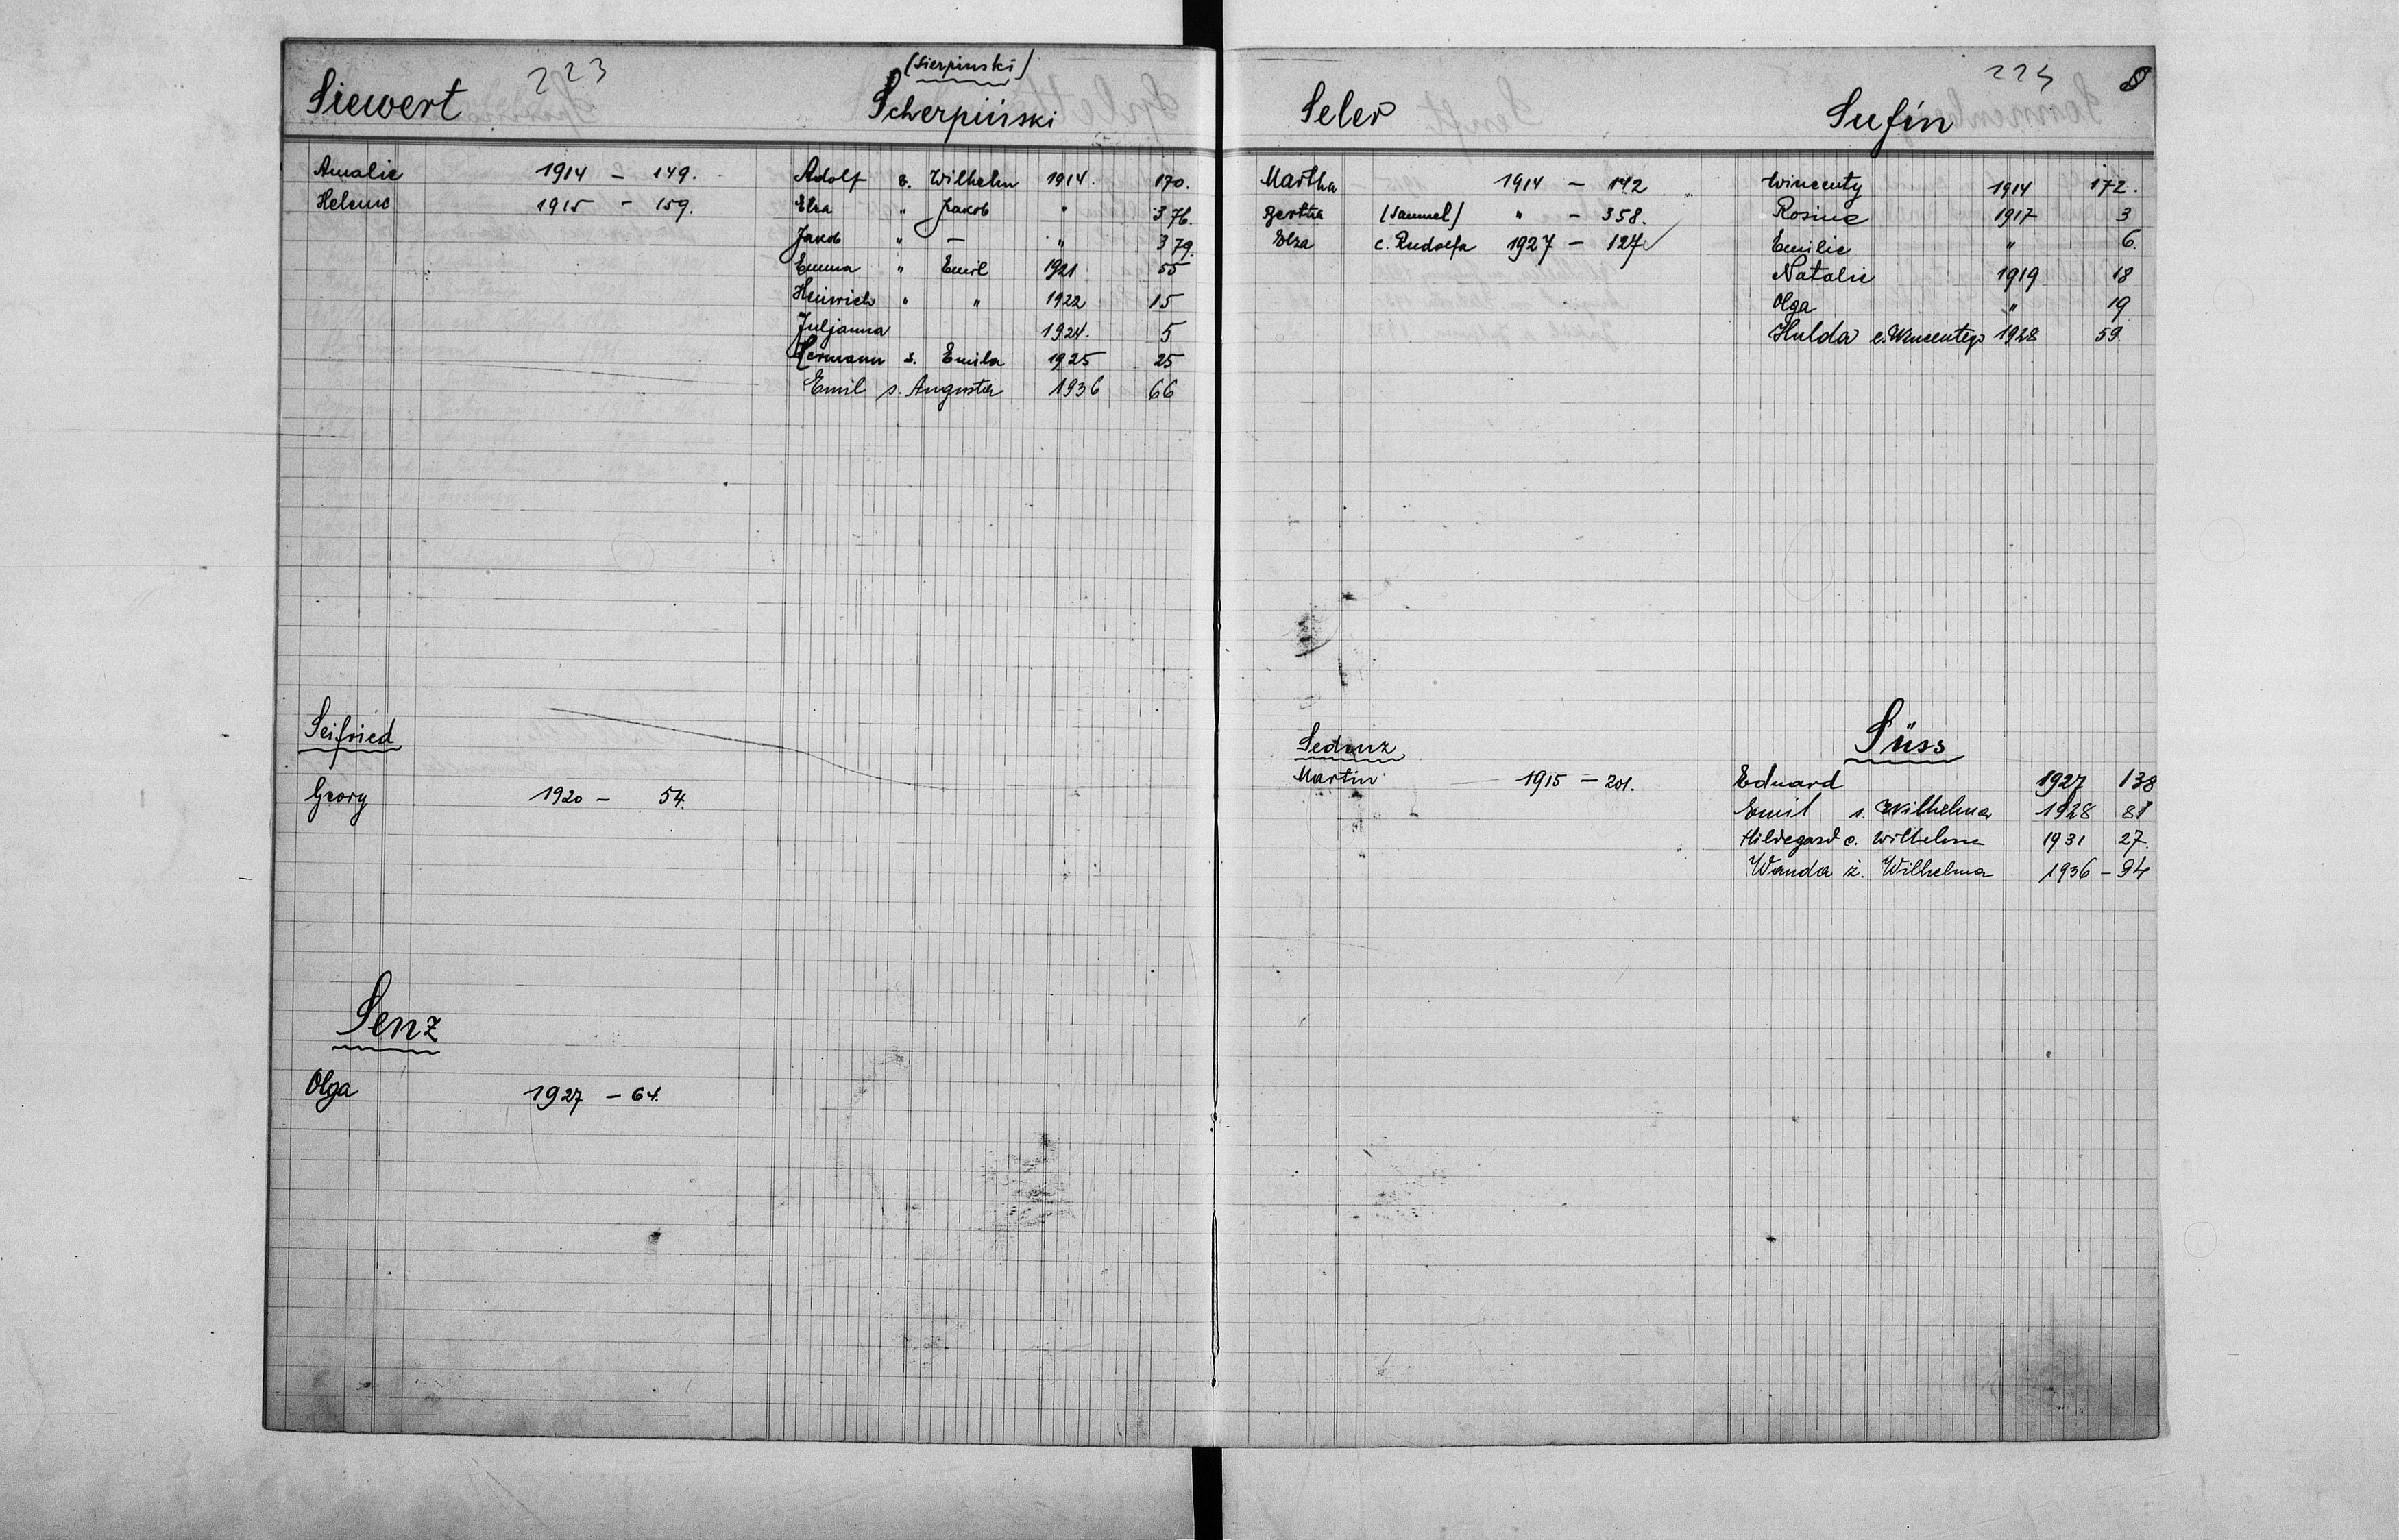 223
Siewert
Amalie 1914 – 149.
Helene 1915 – 159.
Seifried
Georg 1920 – 54.
Senz
Olga 1927 – 64.
(Sierpinski)
Scherpiński
Adolf s. Wilhelm 1914. 170.
Elsa " Jakob " 376.
Jakob " – " 379.
Emma " Emil 1921 55
Heinrich " " 1922 15
Juljanna 1924. 5
Hermann s. Emila 1925 25
Emil s. Augusta 1936 66
Seler
Martha 1914 – 142
Bertha (Samuel) " – 358.
Elza c. Rudolfa 1927 – 127
Sedmz
Martin 1915 – 201.
8
Sufin
Wincenty 1914 172.
Rosine 1917 3
Emilie " 6.
Natalie 1919 18
Olga " 19
Hulda c. Wincentego 1928 59.
Süss
Eduard 1927 138
Emil s. Wilhelma 1928 81
Hildegard c. Wilhelma 1931 27.
Wanda ż. Wilhelma 1936 – 94